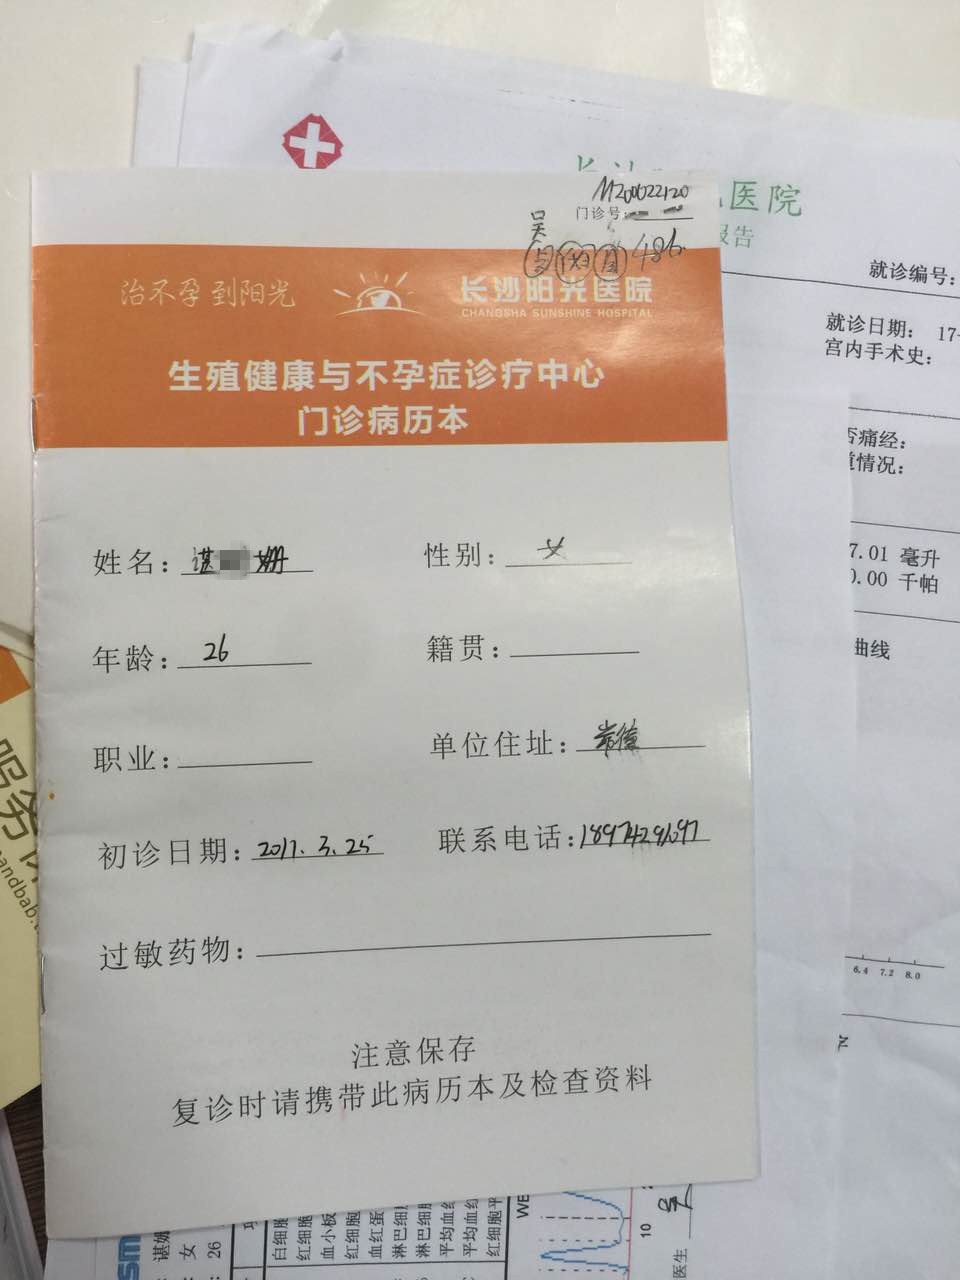 医院
报告
就诊编号:
就诊日期: 17-
宫内手术史:
否痛经:
道情况:
7.01 毫升
0.00 千帕
曲线
6.4 7.2 8.0
门诊号:
486
治不孕 到阳光
长沙阳光医院
CHANGSHA SUNSHINE HOSPITAL
生殖健康与不孕症诊疗中心
门诊病历本
姓名: 谌 姗
性别: 女
年龄: 26
籍贯:
职业:
单位住址: 常德
初诊日期: 2017.3.25
联系电话:
过敏药物:
注意保存
复诊时请携带此病历本及检查资料
服务
andbab
女
26
白细胞
红细胞
血小板
红细胞
血红蛋
淋巴细胞
淋巴细胞
平均血红
平均血红
红细胞平
10
医生